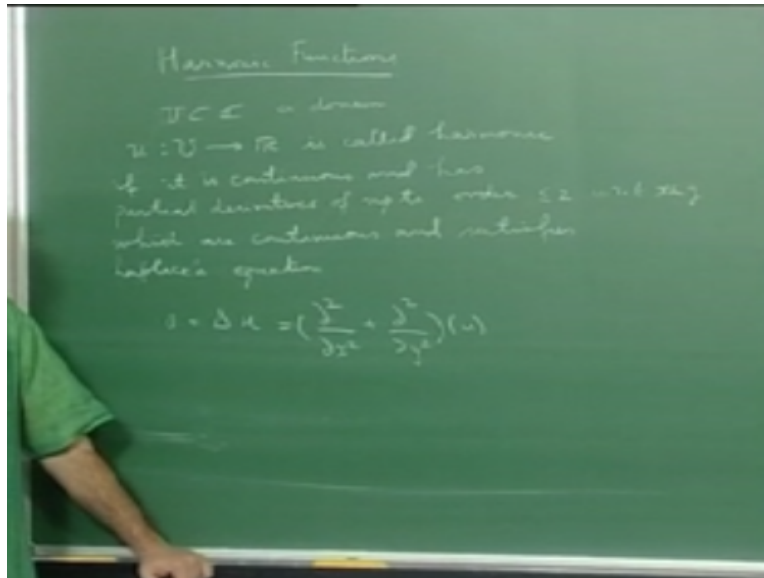 Harmonic Functions
U ⊂ ℂ a domain
u : U → ℝ is called harmonic
if it is continuous and has
partial derivatives of upto order ≤ 2 w.r.t x & y
which are continuous and satisfies
Laplace's equation
0 = Δ u = (∂²/∂x² + ∂²/∂y²)(u)